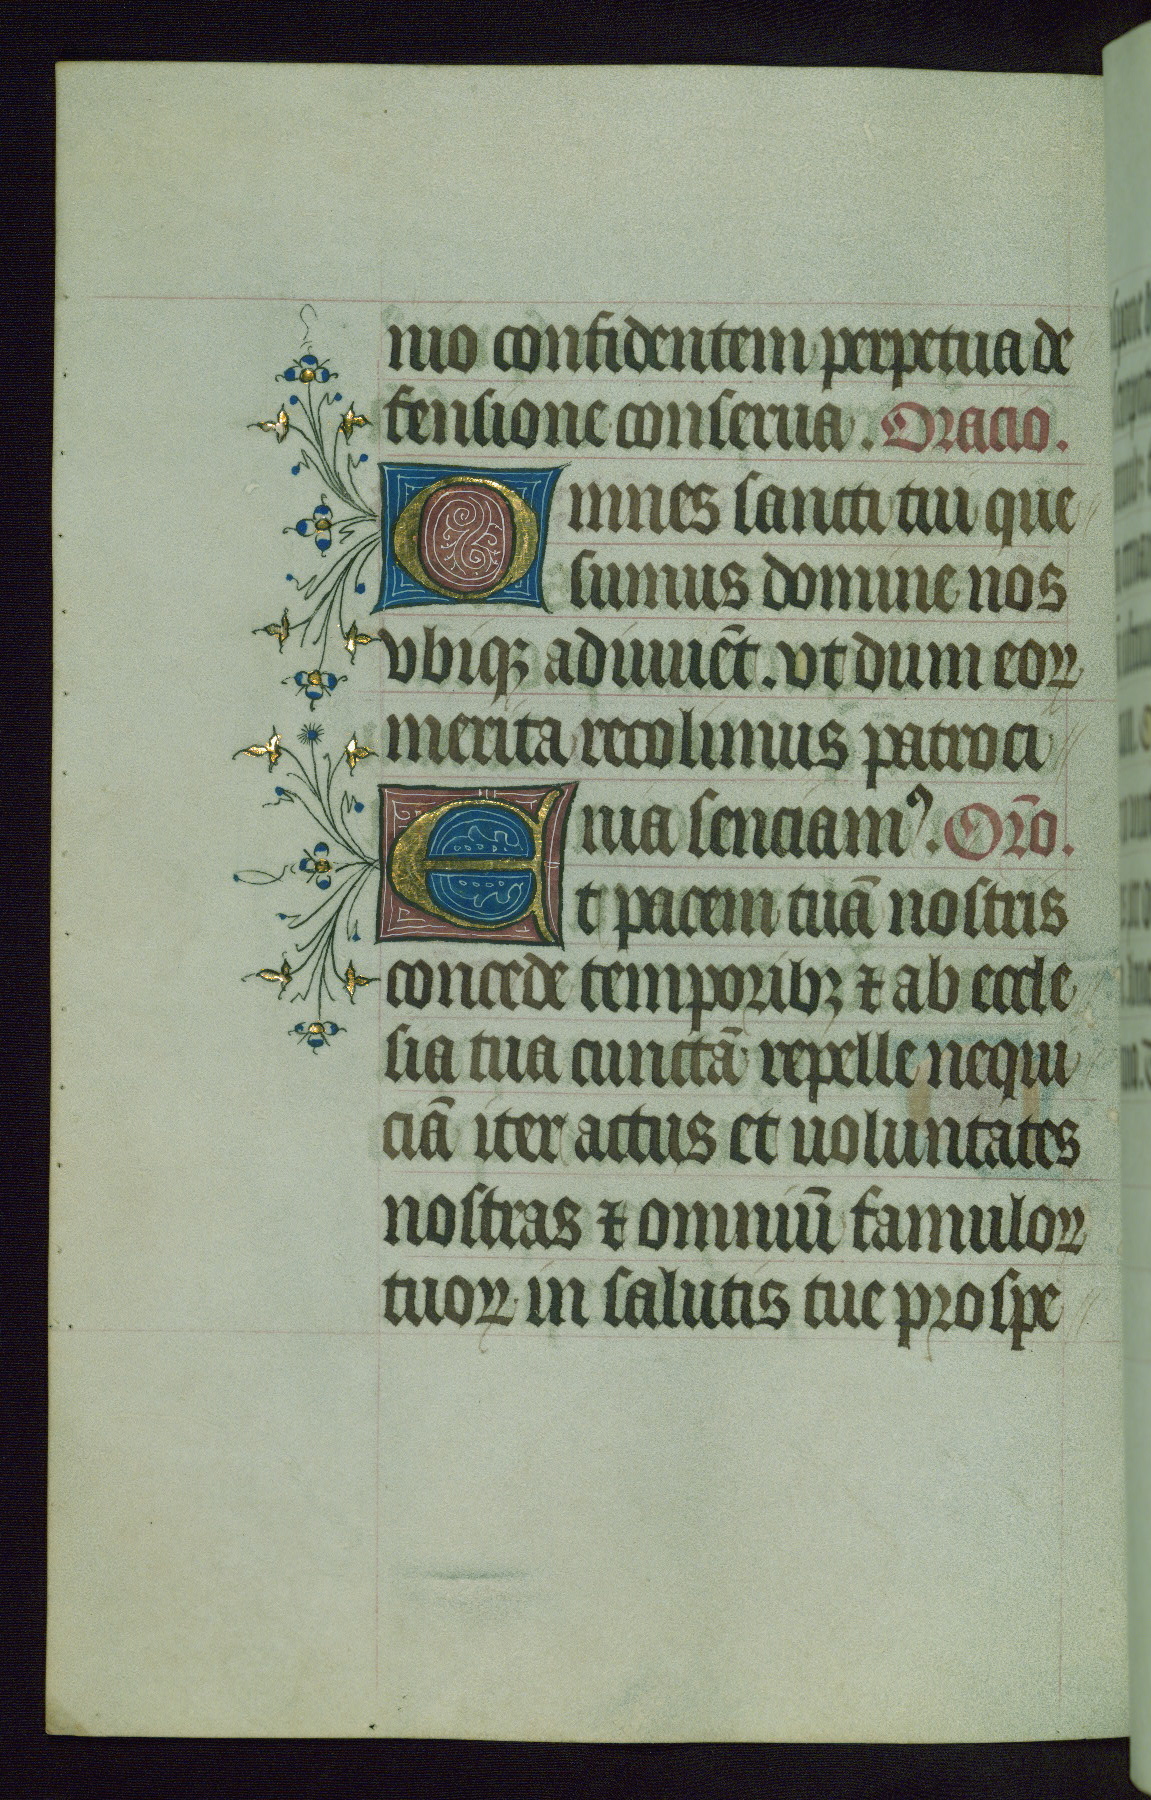 nio confidentem perpetua de
fensione conserua. Oracio.
Omnes sancti tui que
sumus domine nos
vbiqꝫ adiuuēt. vt dum eoꝝ
merita recolimus patroci
nia senciamꝰ. Orō.
Et pacem tuā nostris
concede temporibꝫ ⁊ ab eccle
sia tua cunctā repelle nequi
ciā iter actus et uoluntates
nostras ⁊ omniū famuloꝝ
tuoꝝ in salutis tue prospe